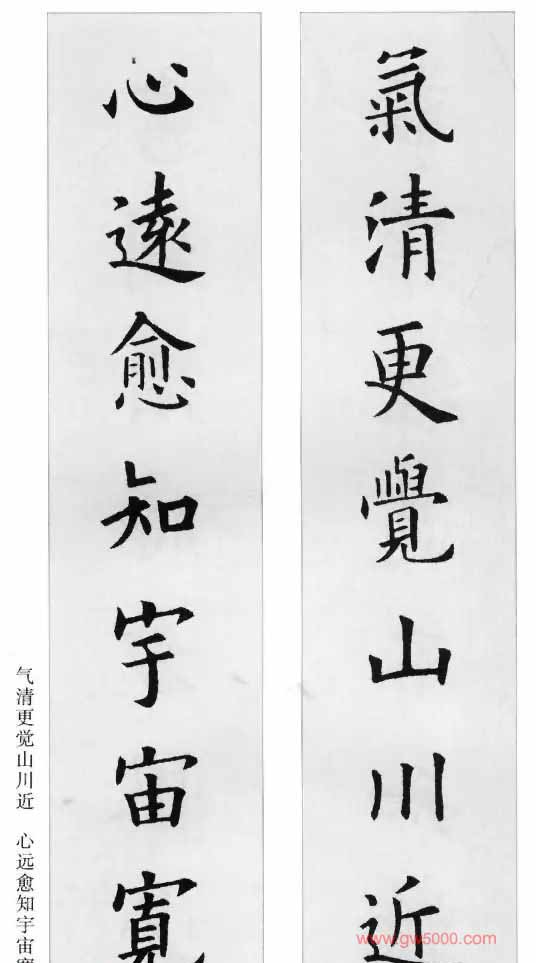 氣清更覺山川近
心遠愈知宇宙寬
气清更觉山川近 心远愈知宇宙
www.gw5000.com